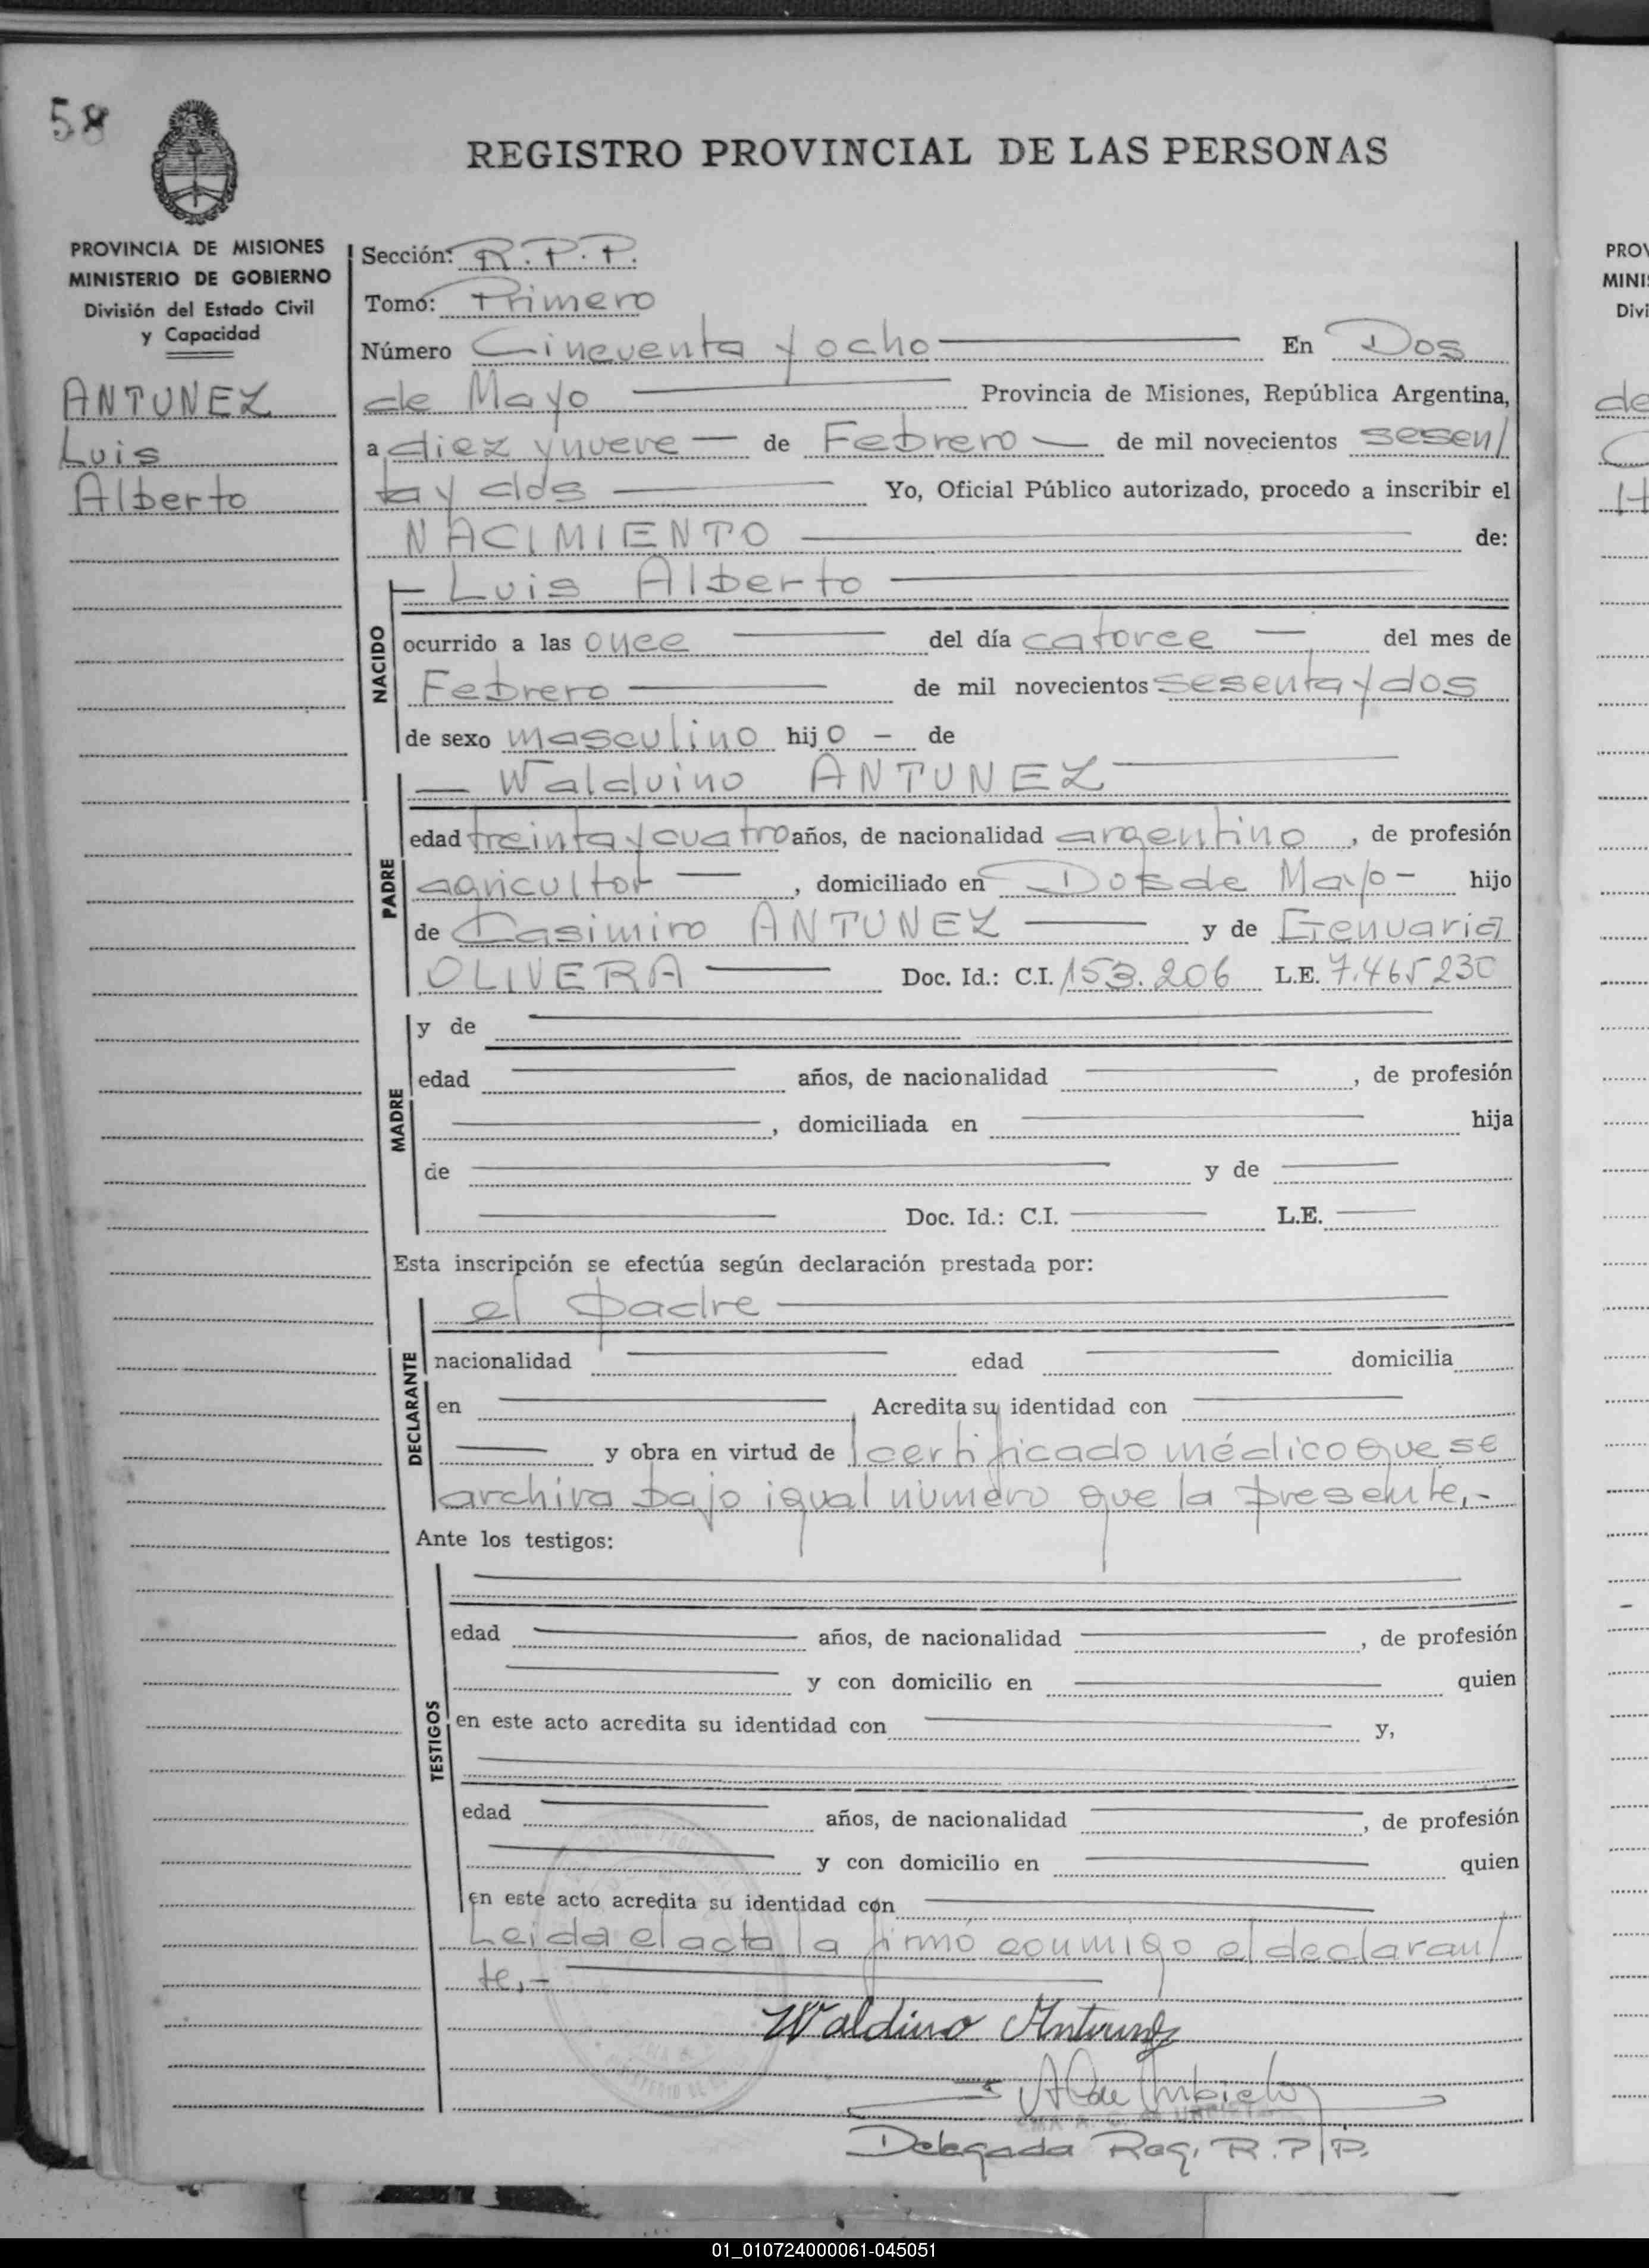 58
REGISTRO PROVINCIAL DE LAS PERSONAS
PROVINCIA DE MISIONES
MINISTERIO DE GOBIERNO
División del Estado Civil
y Capacidad
ANTUNEZ
Luis
Alberto
Sección: R.P.P.
Tomo: Primero
Número Cincuenta y ocho En Dos
de Mayo Provincia de Misiones, República Argentina,
a diez y nueve de Febrero de mil novecientos sesen/
ta y dos Yo, Oficial Público autorizado, procedo a inscribir el
NACIMIENTO de:
NACIDO
Luis Alberto
ocurrido a las once del día catorce del mes de
Febrero de mil novecientos sesenta y dos
de sexo masculino hijo - de
PADRE
Walduino ANTUNEZ
edad treinta y cuatro años, de nacionalidad argentino, de profesión
agricultor, domiciliado en Dos de Mayo - hijo
de Casimiro ANTUNEZ y de Genuaria
OLIVERA Doc. Id.: C.I. 153.206 L.E. 7.465230
MADRE
y de
edad años, de nacionalidad , de profesión
, domiciliada en hija
de y de
Doc. Id.: C.I. L.E.
Esta inscripción se efectúa según declaración prestada por:
DECLARANTE
el padre
nacionalidad edad domicilia
en Acredita su identidad con
y obra en virtud de l certificado médico que se
archiva bajo igual número que la presente.-
Ante los testigos:
TESTIGOS
edad años, de nacionalidad , de profesión
y con domicilio en quien
en este acto acredita su identidad con y,
edad años, de nacionalidad , de profesión
y con domicilio en quien
en este acto acredita su identidad con
Leida el acta la firmó conmigo el declaran/
te.-
Waldino Antunez
Delegada Reg. R.P.P.
PROV
MINI
Divi
de
01_010724000061-045051